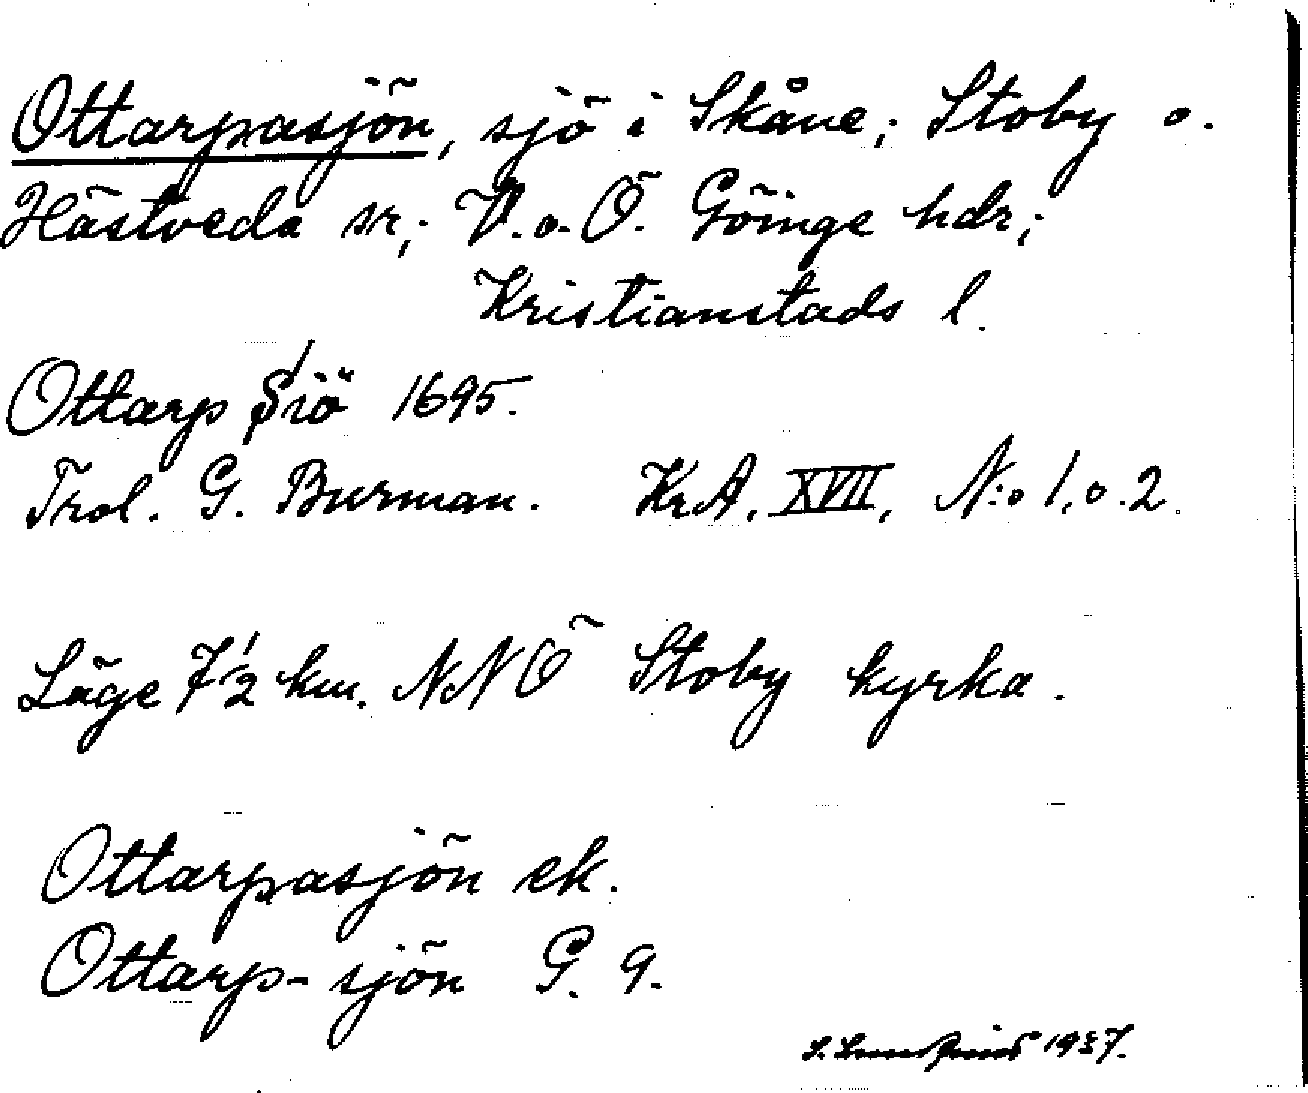 Ottarpasjön, sjö i Skåne; Stoby o.
Hästveda sr; V. o. Ö. Göinge hdr;
Kristianstads l.
Ottarp Siö 1695.
Trol. G. Burman. KrA, XVII, N:o 1. o. 2.
Läge 7 1/2 km. NNÖ Stoby kyrka.
Ottarpasjön ek.
Ottarp-sjön G. 9.
1937.